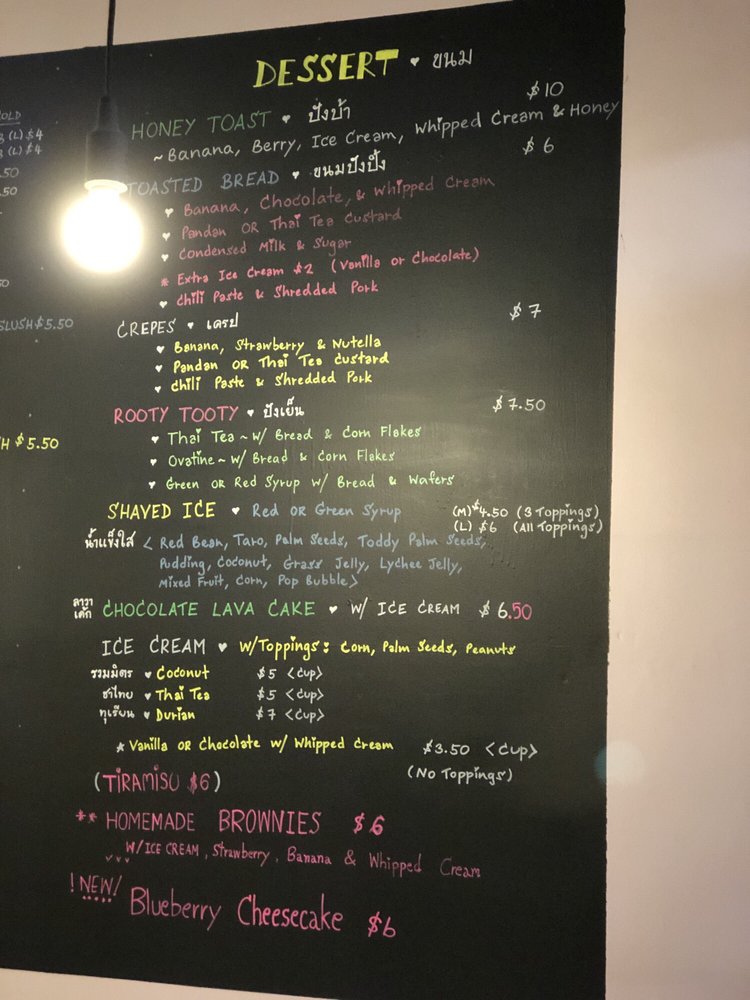 DESSERT ♥ ขนม
HONEY TOAST ♥ ปังป้า $10
~ Banana, Berry, Ice Cream, Whipped Cream & Honey
TOASTED BREAD ♥ ขนมปังปิ้ง $6
♥ Banana, Chocolate, & Whipped Cream
♥ Pandan OR Thai Tea Custard
♥ Condensed Milk & Sugar
* Extra Ice Cream $2 (Vanilla or Chocolate)
♥ Chili Paste & Shredded Pork
CREPES ♥ เครป $7
♥ Banana, Strawberry & Nutella
♥ Pandan OR Thai Tea Custard
♥ Chili Paste & Shredded Pork
ROOTY TOOTY ♥ ปังเย็น $7.50
♥ Thai Tea ~ W/ Bread & Corn Flakes
♥ Ovaltine ~ W/ Bread & Corn Flakes
♥ Green or Red Syrup W/ Bread & Wafers
SHAVED ICE ♥ Red or Green Syrup (M) $4.50 (3 Toppings)
(L) $6 (All Toppings)
น้ำแข็งใส < Red Bean, Taro, Palm Seeds, Toddy Palm Seeds,
Pudding, Coconut, Grass Jelly, Lychee Jelly,
Mixed Fruit, Corn, Pop Bubble >
ลาวา เค้ก CHOCOLATE LAVA CAKE ♥ W/ ICE CREAM $6.50
ICE CREAM ♥ W/Toppings: Corn, Palm Seeds, Peanuts
รวมมิตร ♥ Coconut $5 <Cup>
ชาไทย ♥ Thai Tea $5 <Cup>
ทุเรียน ♥ Durian $7 <Cup>
* Vanilla OR Chocolate W/ Whipped Cream $3.50 <Cup>
(No Toppings)
(TIRAMISU $6)
** HOMEMADE BROWNIES $6
W/ICE CREAM, Strawberry, Banana & Whipped Cream
!NEW! Blueberry Cheesecake $6
(L) $4
(L) $4
.50
.50
SLUSH $5.50
H $5.50